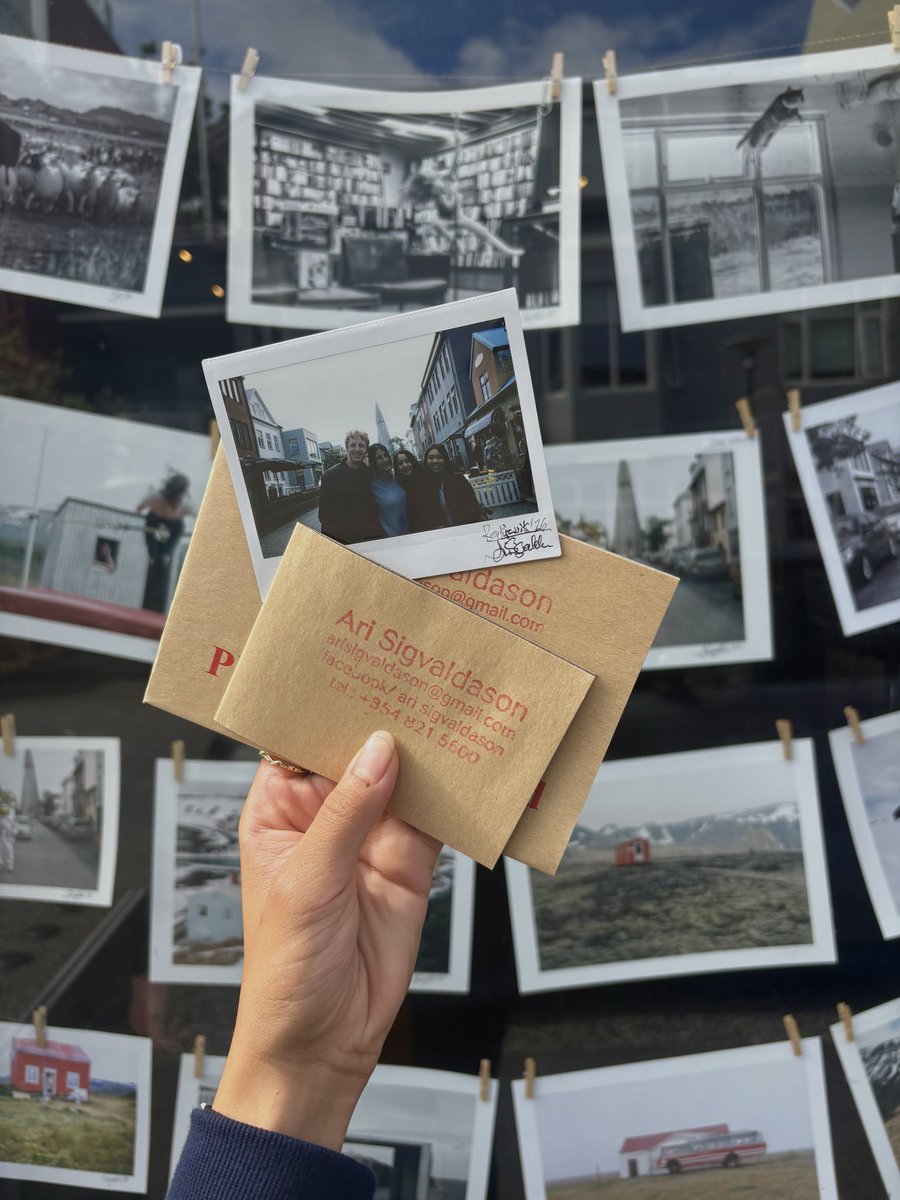 Reykjavik '26
valdason
son@gmail.com
P
Ari Sigvaldason
arisigvaldason@gmail.com
facebook/ ari sigvaldason
tel.: +354 821 5600